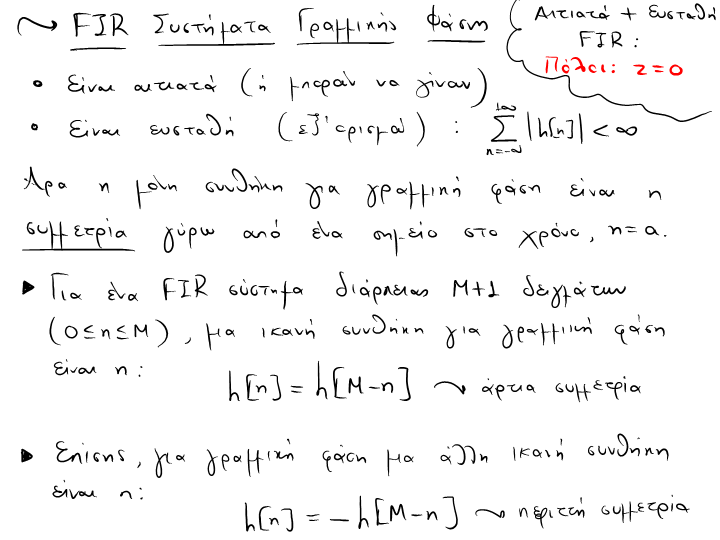 FIR Συστήματα Γραμμικής Φάσης
Αιτιατά + Ευσταθή
FIR:
Πόλοι: z=0
• Είναι αιτιατά (ή μπορούν να γίνουν)
• Είναι ευσταθή (εξ' ορισμού) : \sum_{n=-\infty}^{+\infty} |h[n]| < ∞
Άρα η μόνη συνθήκη για γραμμική φάση είναι η
συμμετρία γύρω από ένα σημείο στο χρόνο, n=a.
▶ Για ένα FIR σύστημα διάρκειας M+1 δειγμάτων
(0≤n≤M), μια ικανή συνθήκη για γραμμική φάση
είναι η:
h[n] = h[M-n] ⤳ άρτια συμμετρία
▶ Επίσης, για γραμμική φάση μια άλλη ικανή συνθήκη
είναι η:
h[n] = -h[M-n] ⤳ περιττή συμμετρία